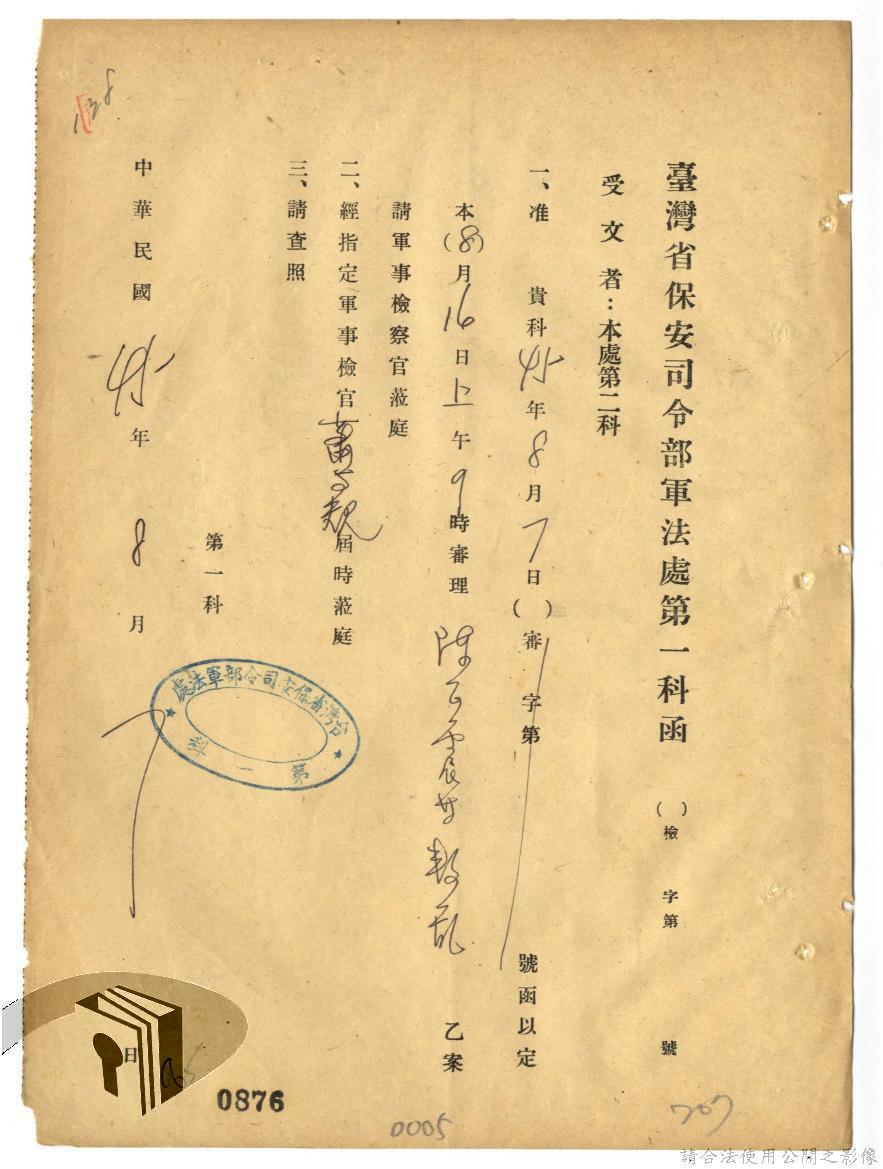 臺灣省保安司令部軍法處第一科函
( )檢 字第 號
受文者：本處第二科
一、准 貴科45年8月7日( )審 字第 號函以定
本(8)月16日上午9時審理 陳 等叛乱 乙案
請軍事檢察官蒞庭
二、經指定軍事檢官 屆時蒞庭
三、請查照
第一科
中華民國45年8月 日
台灣省保安司令部軍法處
第一科
0876
0005
707
請合法使用公開之影像